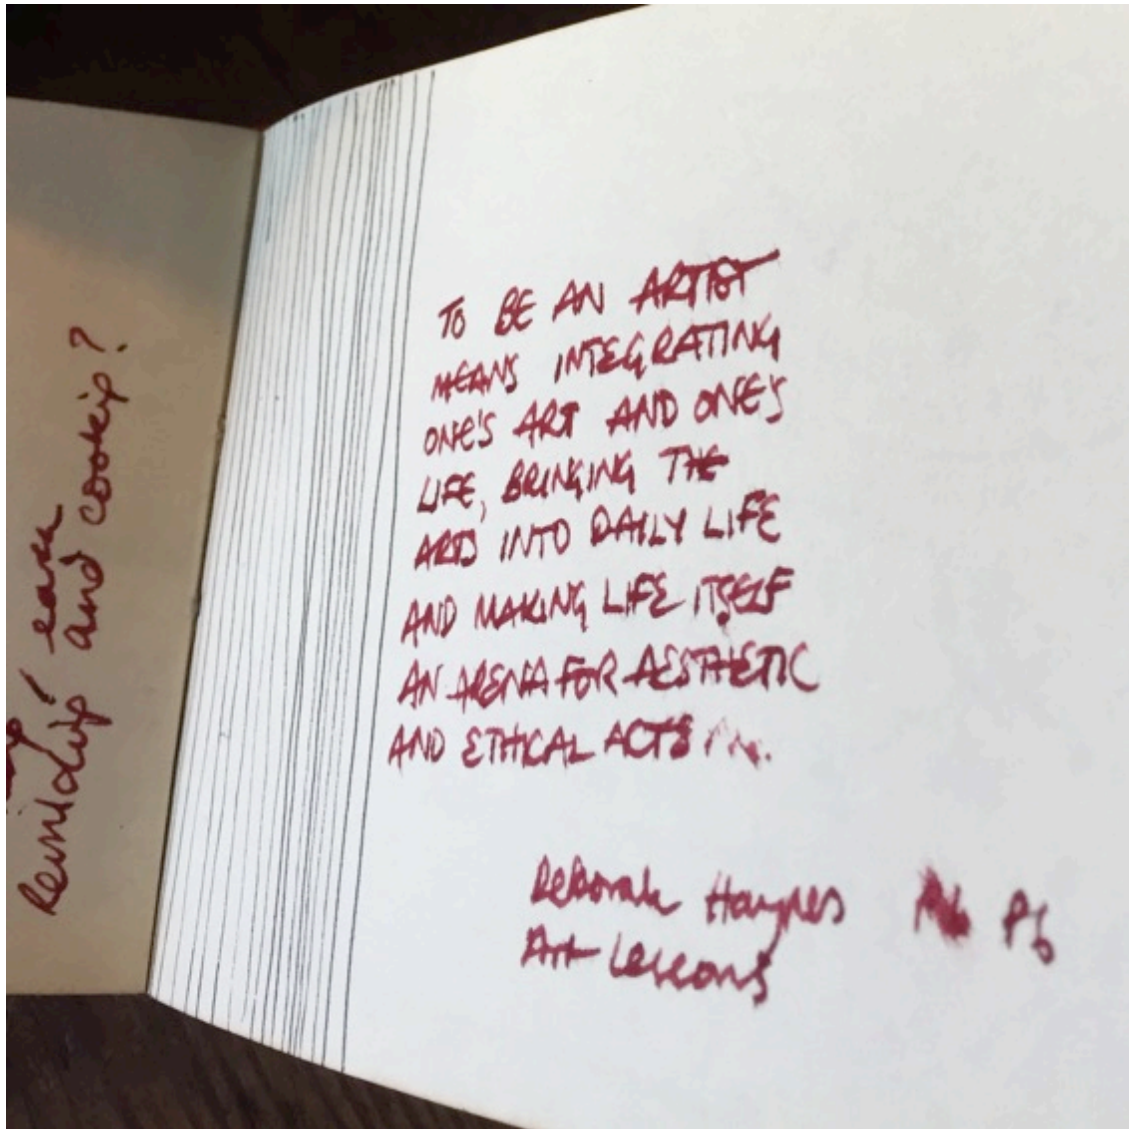 and cookip?
TO BE AN ARTIST
MEANS INTEGRATING
ONE'S ART AND ONE'S
LIFE, BRINGING THE
ARTS INTO DAILY LIFE
AND MAKING LIFE ITSELF
AN ARENA FOR AESTHETIC
AND ETHICAL ACTS
Deborah Haynes P6
Art Lessons